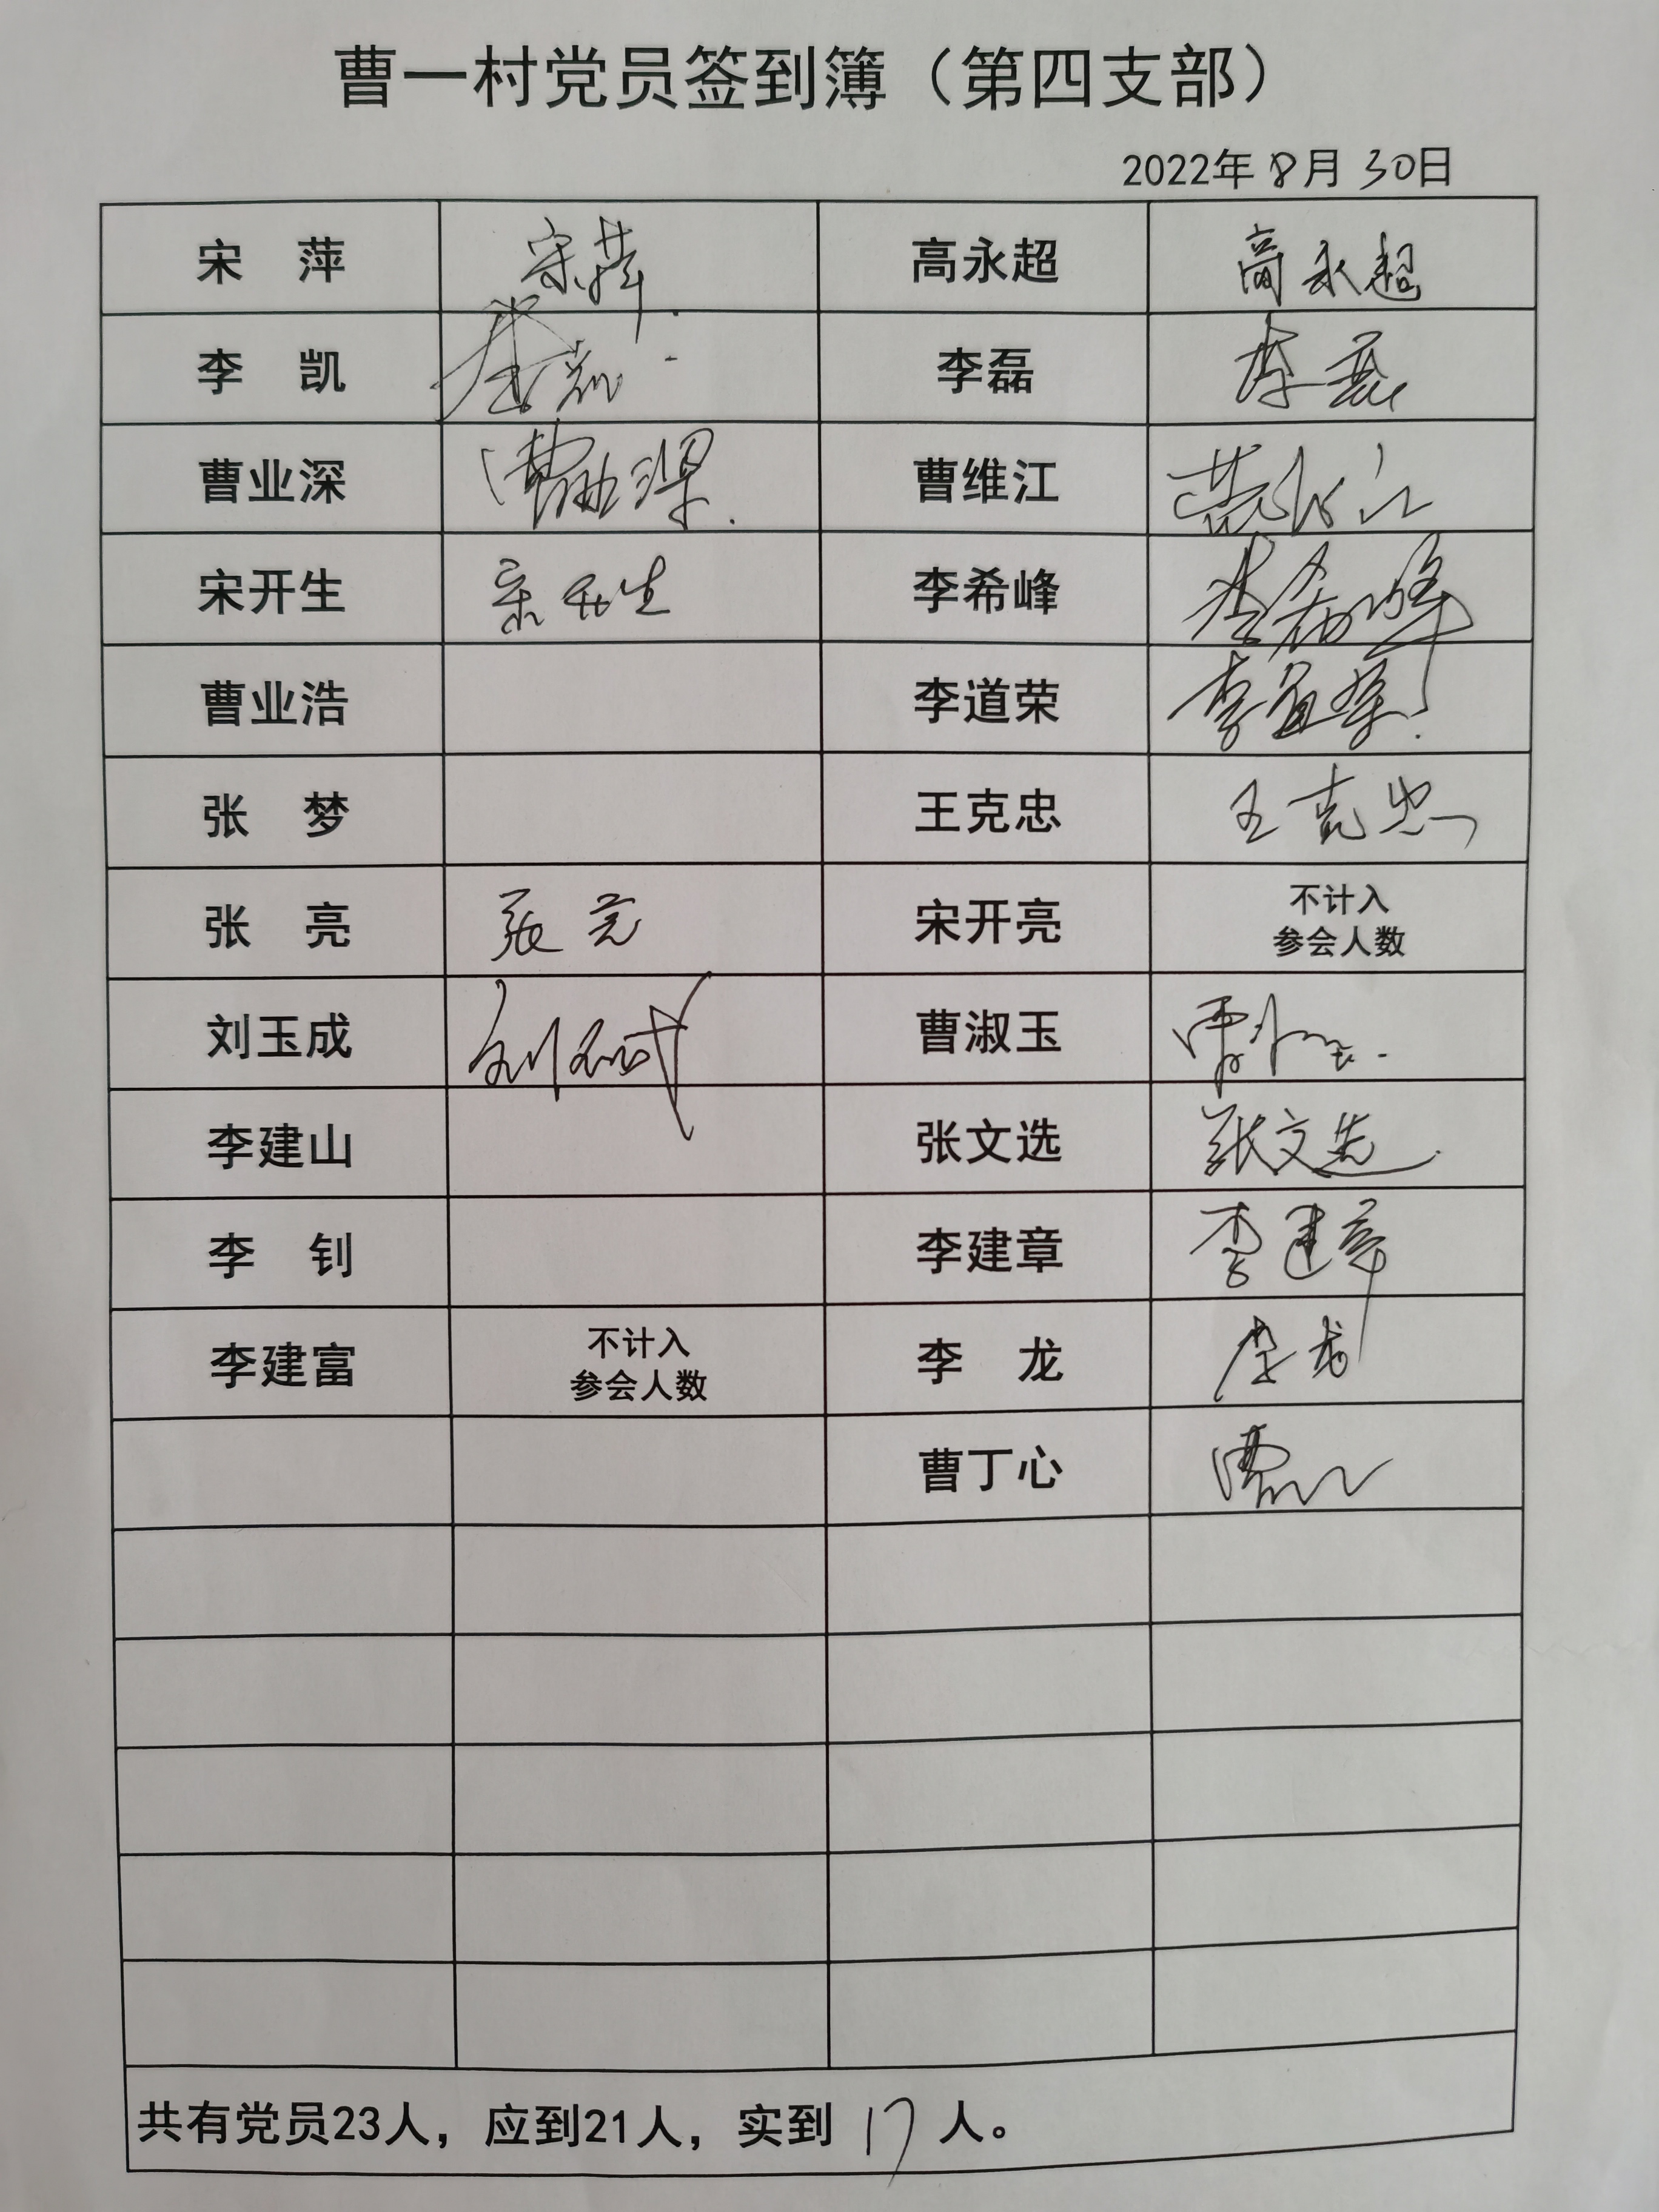 曹一村党员签到簿（第四支部）
2022年8月30日
宋 萍 宋萍 高永超 高永超
李 凯 李凯 李磊 李磊
曹业深 曹业深 曹维江 曹维江
宋开生 宋开生 李希峰 李希峰
曹业浩 李道荣 李道荣
张 梦 王克忠 王克忠
张 亮 张亮 宋开亮 不计入
参会人数
刘玉成 刘玉成 曹淑玉 曹淑玉
李建山 张文选 张文选
李 钊 李建章 李建章
李建富 不计入
参会人数 李 龙 李龙
曹丁心 曹丁心
共有党员23人，应到21人，实到 17 人。